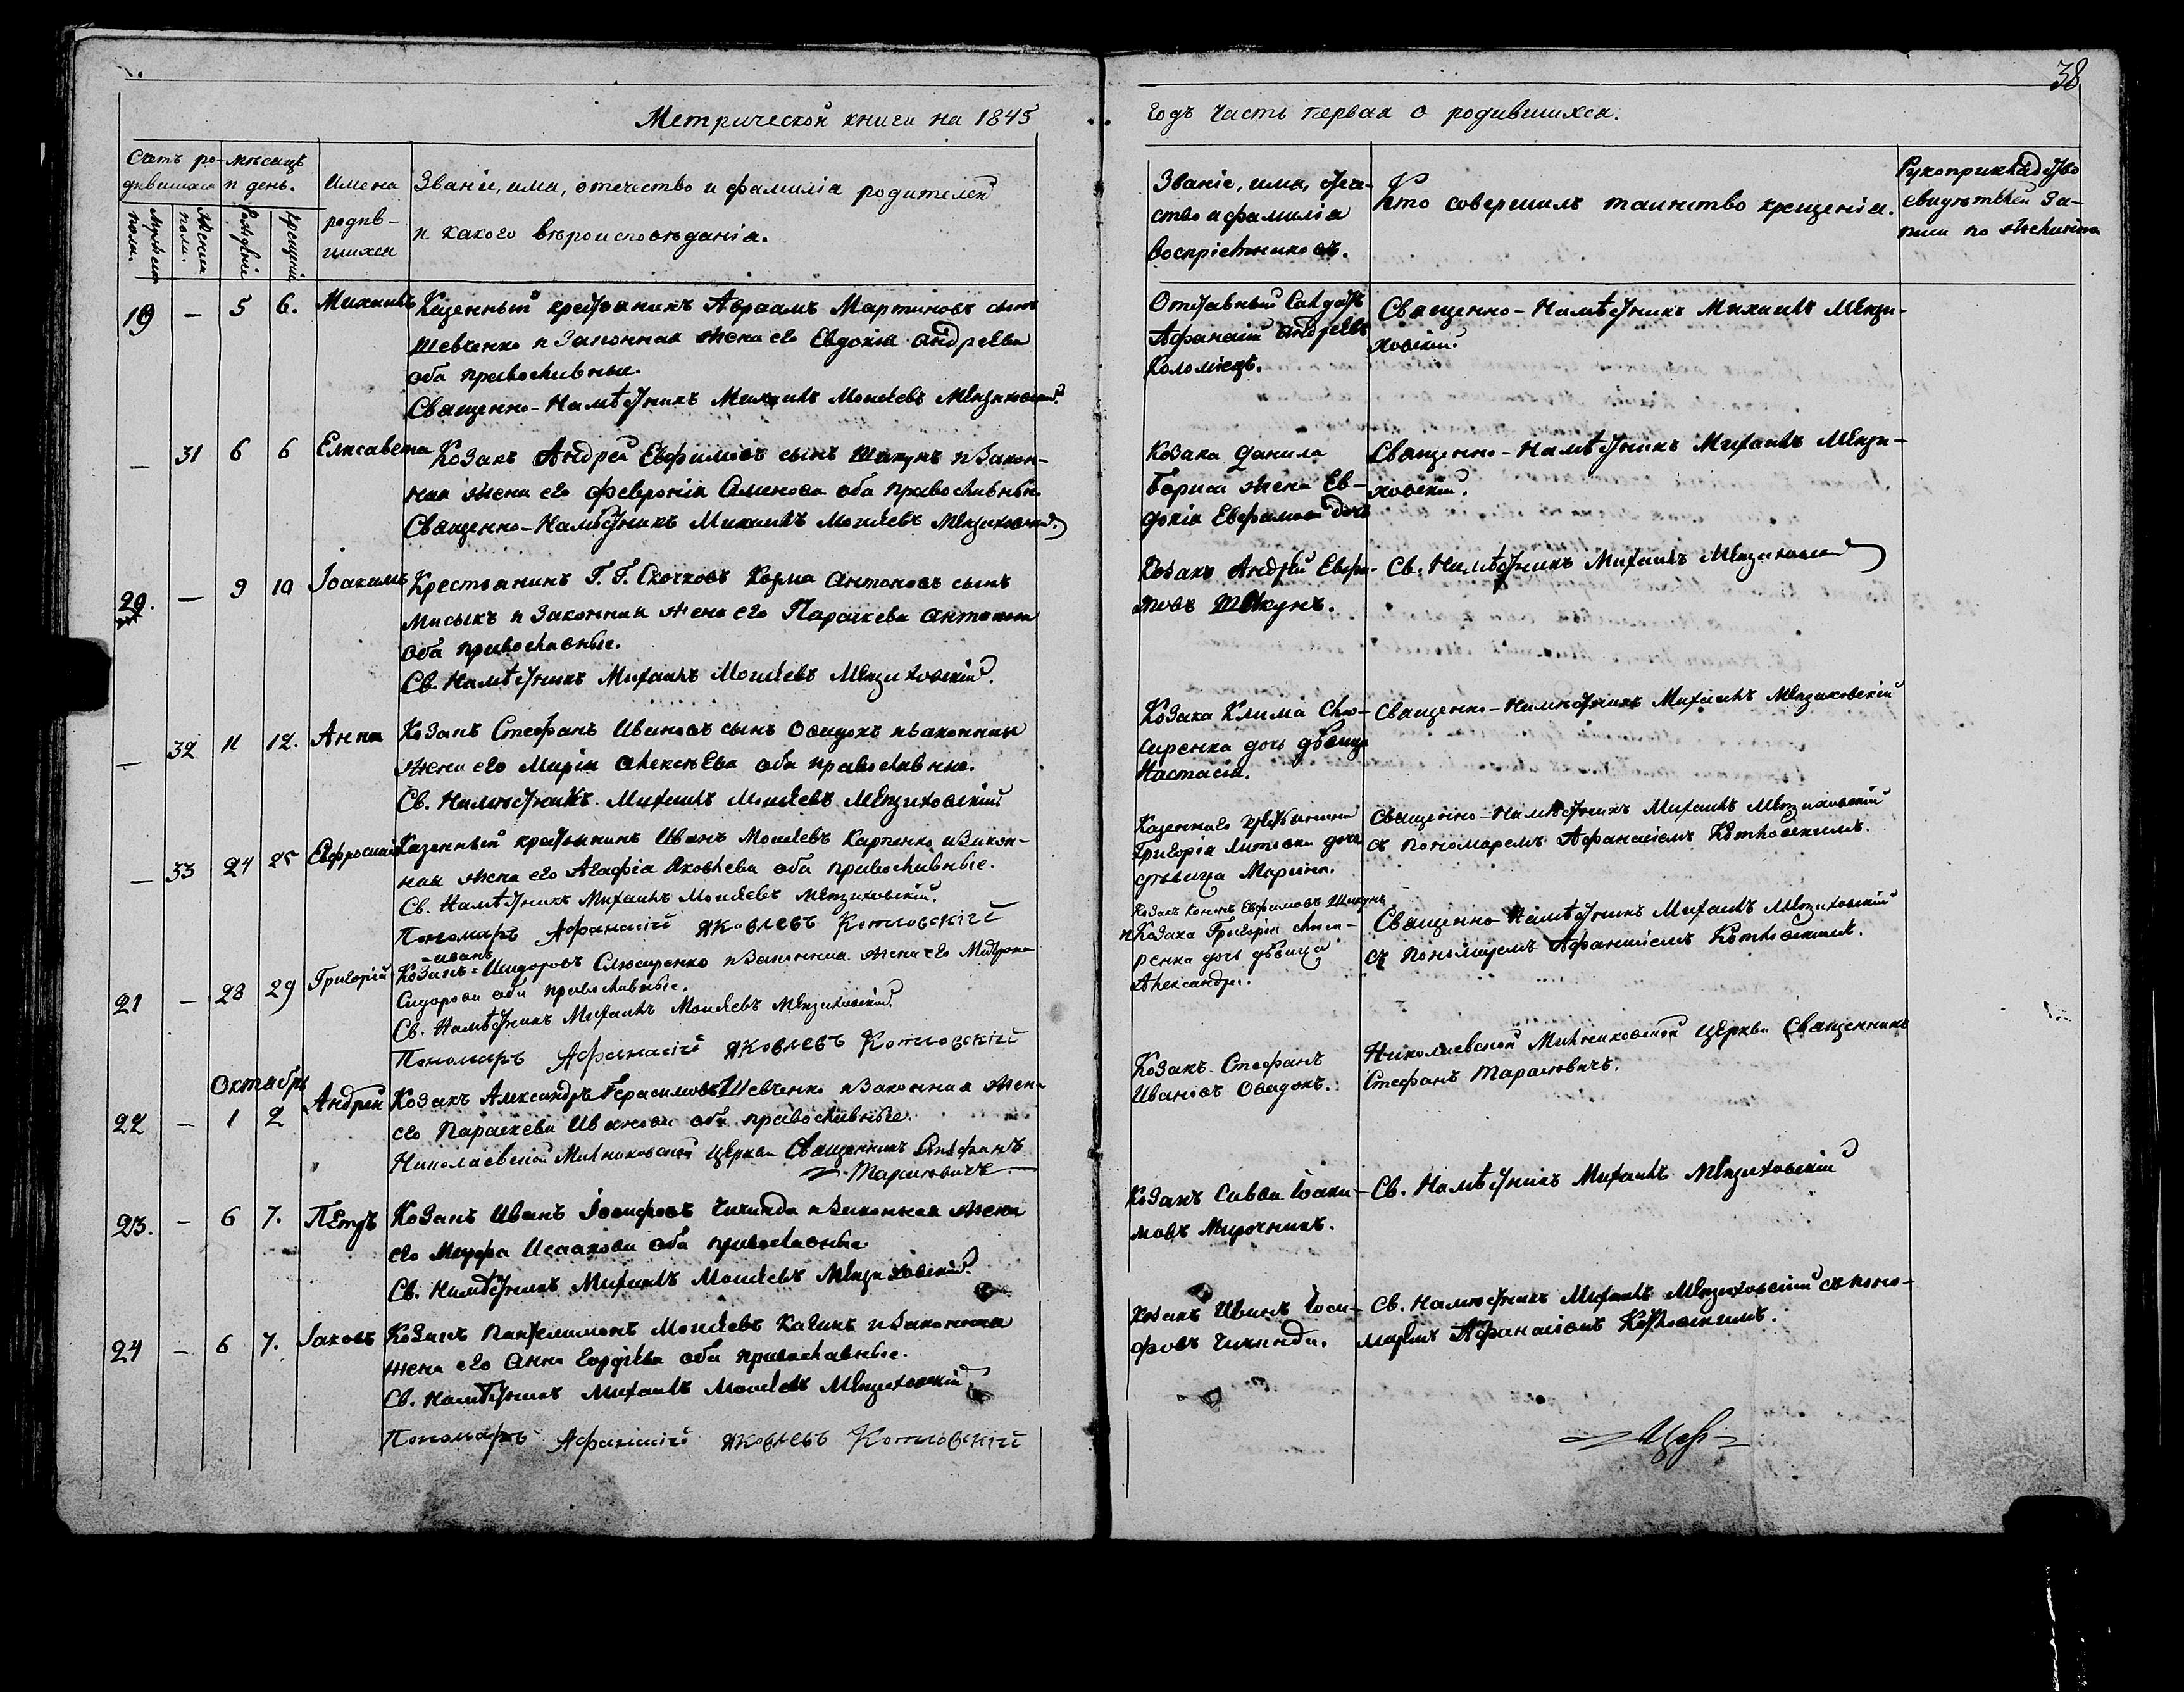 38
Метрической книги на 1845
Годъ Часть первая о родившихся.
Счетъ ро-
дившихся
мѣсяцъ
и день.
Имена
родив-
шихся
Званіе, имя, отечество и фамилія родителей
и какого вѣроисповѣданія.
Мужеска
пола.
Женска
пола.
Рожденіе
Крещеніе
Званіе, имя, отече-
ство и фамилія
воспріемниковъ.
Кто совершилъ таинство крещенія.
Рукоприкладство
свидѣтелей за-
писи по желанію
19 — 5 6. Михаилъ
Казенный крестьянинъ Авраамъ Мартиновъ сынъ
Шевченко и Законная жена его Евдокія Андреева
оба православные.
Священно-Намѣстникъ Михаилъ Моисеевъ
Отставный Солдатъ
Афанасій Андреевъ
Коломіецъ.
Священно-Намѣстникъ Михаилъ
— 31 6 6 Елисавета
Козакъ Андрей Евфимовъ сынъ Шикунъ и Закон-
ная жена его Февронія Семенова оба православные
Священно-Намѣстникъ Михаилъ Моисеевъ
Козака Данила
жена Ев-
докія
Священно-Намѣстникъ Михаилъ
20. — 9 10 Іоакимъ
Крестьянинъ Г. Г. Скочковъ Козма Антоновъ сынъ
Мисыкъ и Законная жена его Параскева Антонова
оба православные.
Св. Намѣстникъ Михаилъ Моисеевъ
Козакъ Андрей Евфи-
мовъ Шикунъ.
Св. Намѣстникъ Михаилъ
— 32 11 12. Анна
Козакъ Стефанъ Ивановъ сынъ Овидокъ и Законная
жена его Марія Алексѣева оба православные.
Св. Намѣстникъ Михаилъ Моисеевъ
Козака Клима Слю-
саренка дочь дѣвица
Настасія.
Священно-Намѣстникъ Михаилъ
— 33 24 25 Евфросинія
Казенный крестьянинъ Иванъ Моисеевъ Карпенко и Закон-
ная жена его Агафія Яковлева оба православные.
Св. Намѣстникъ Михаилъ Моисеевъ
Пономарь Афанасій Яковлевъ Котловскій
Казеннаго крестьянина
Григорія дочь
дѣвица Марина.
Священно-Намѣстникъ Михаилъ
съ пономаремъ Афанасіемъ Котловскимъ.
21 — 28 29 Григорій
Иванъ
Козакъ = Исидоровъ Слюсаренко и Законная жена его Матрона
Сидорова оба православные.
Св. Намѣстникъ Михаилъ Моисеевъ
Пономарь Афанасій Яковлевъ Котловскій
Козакъ Кононъ Евфимовъ Шикунъ
и Козака Григорія Слюса-
ренка дочь дѣвица
Александра.
Священно-Намѣстникъ Михаилъ
съ Пономаремъ Афанасіемъ Котловскимъ.
Октябрь
22 — 1 2 Андрей
Козакъ Александръ Герасимовъ Шевченко и Законная жена
его Параскева Иванова оба православные.
Николаевской церкви Священникъ Стефанъ
Тарасовичъ
Козакъ Стефанъ
Ивановъ Овидокъ.
Николаевской церкви Священникъ
Стефанъ Тарасовичъ.
23. — 6 7. Петръ
Козакъ Иванъ Іосифовъ Чикинда и Законная жена
его Исаакова оба православные.
Св. Намѣстникъ Михаилъ Моисеевъ
Козакъ Савва Іоаки-
мовъ Мирочникъ.
Св. Намѣстникъ Михаилъ
24 — 6 7. Іаковъ
Козакъ Пантелимонъ Моисеевъ и Законная
жена его Анна оба православные.
Св. Намѣстникъ Михаилъ Моисеевъ
Пономарь Афанасій Яковлевъ Котловскій
Козакъ Иванъ Іоси-
фовъ Чикинда.
Св. Намѣстникъ Михаилъ съ поно-
маремъ Афанасіемъ Котловскимъ.